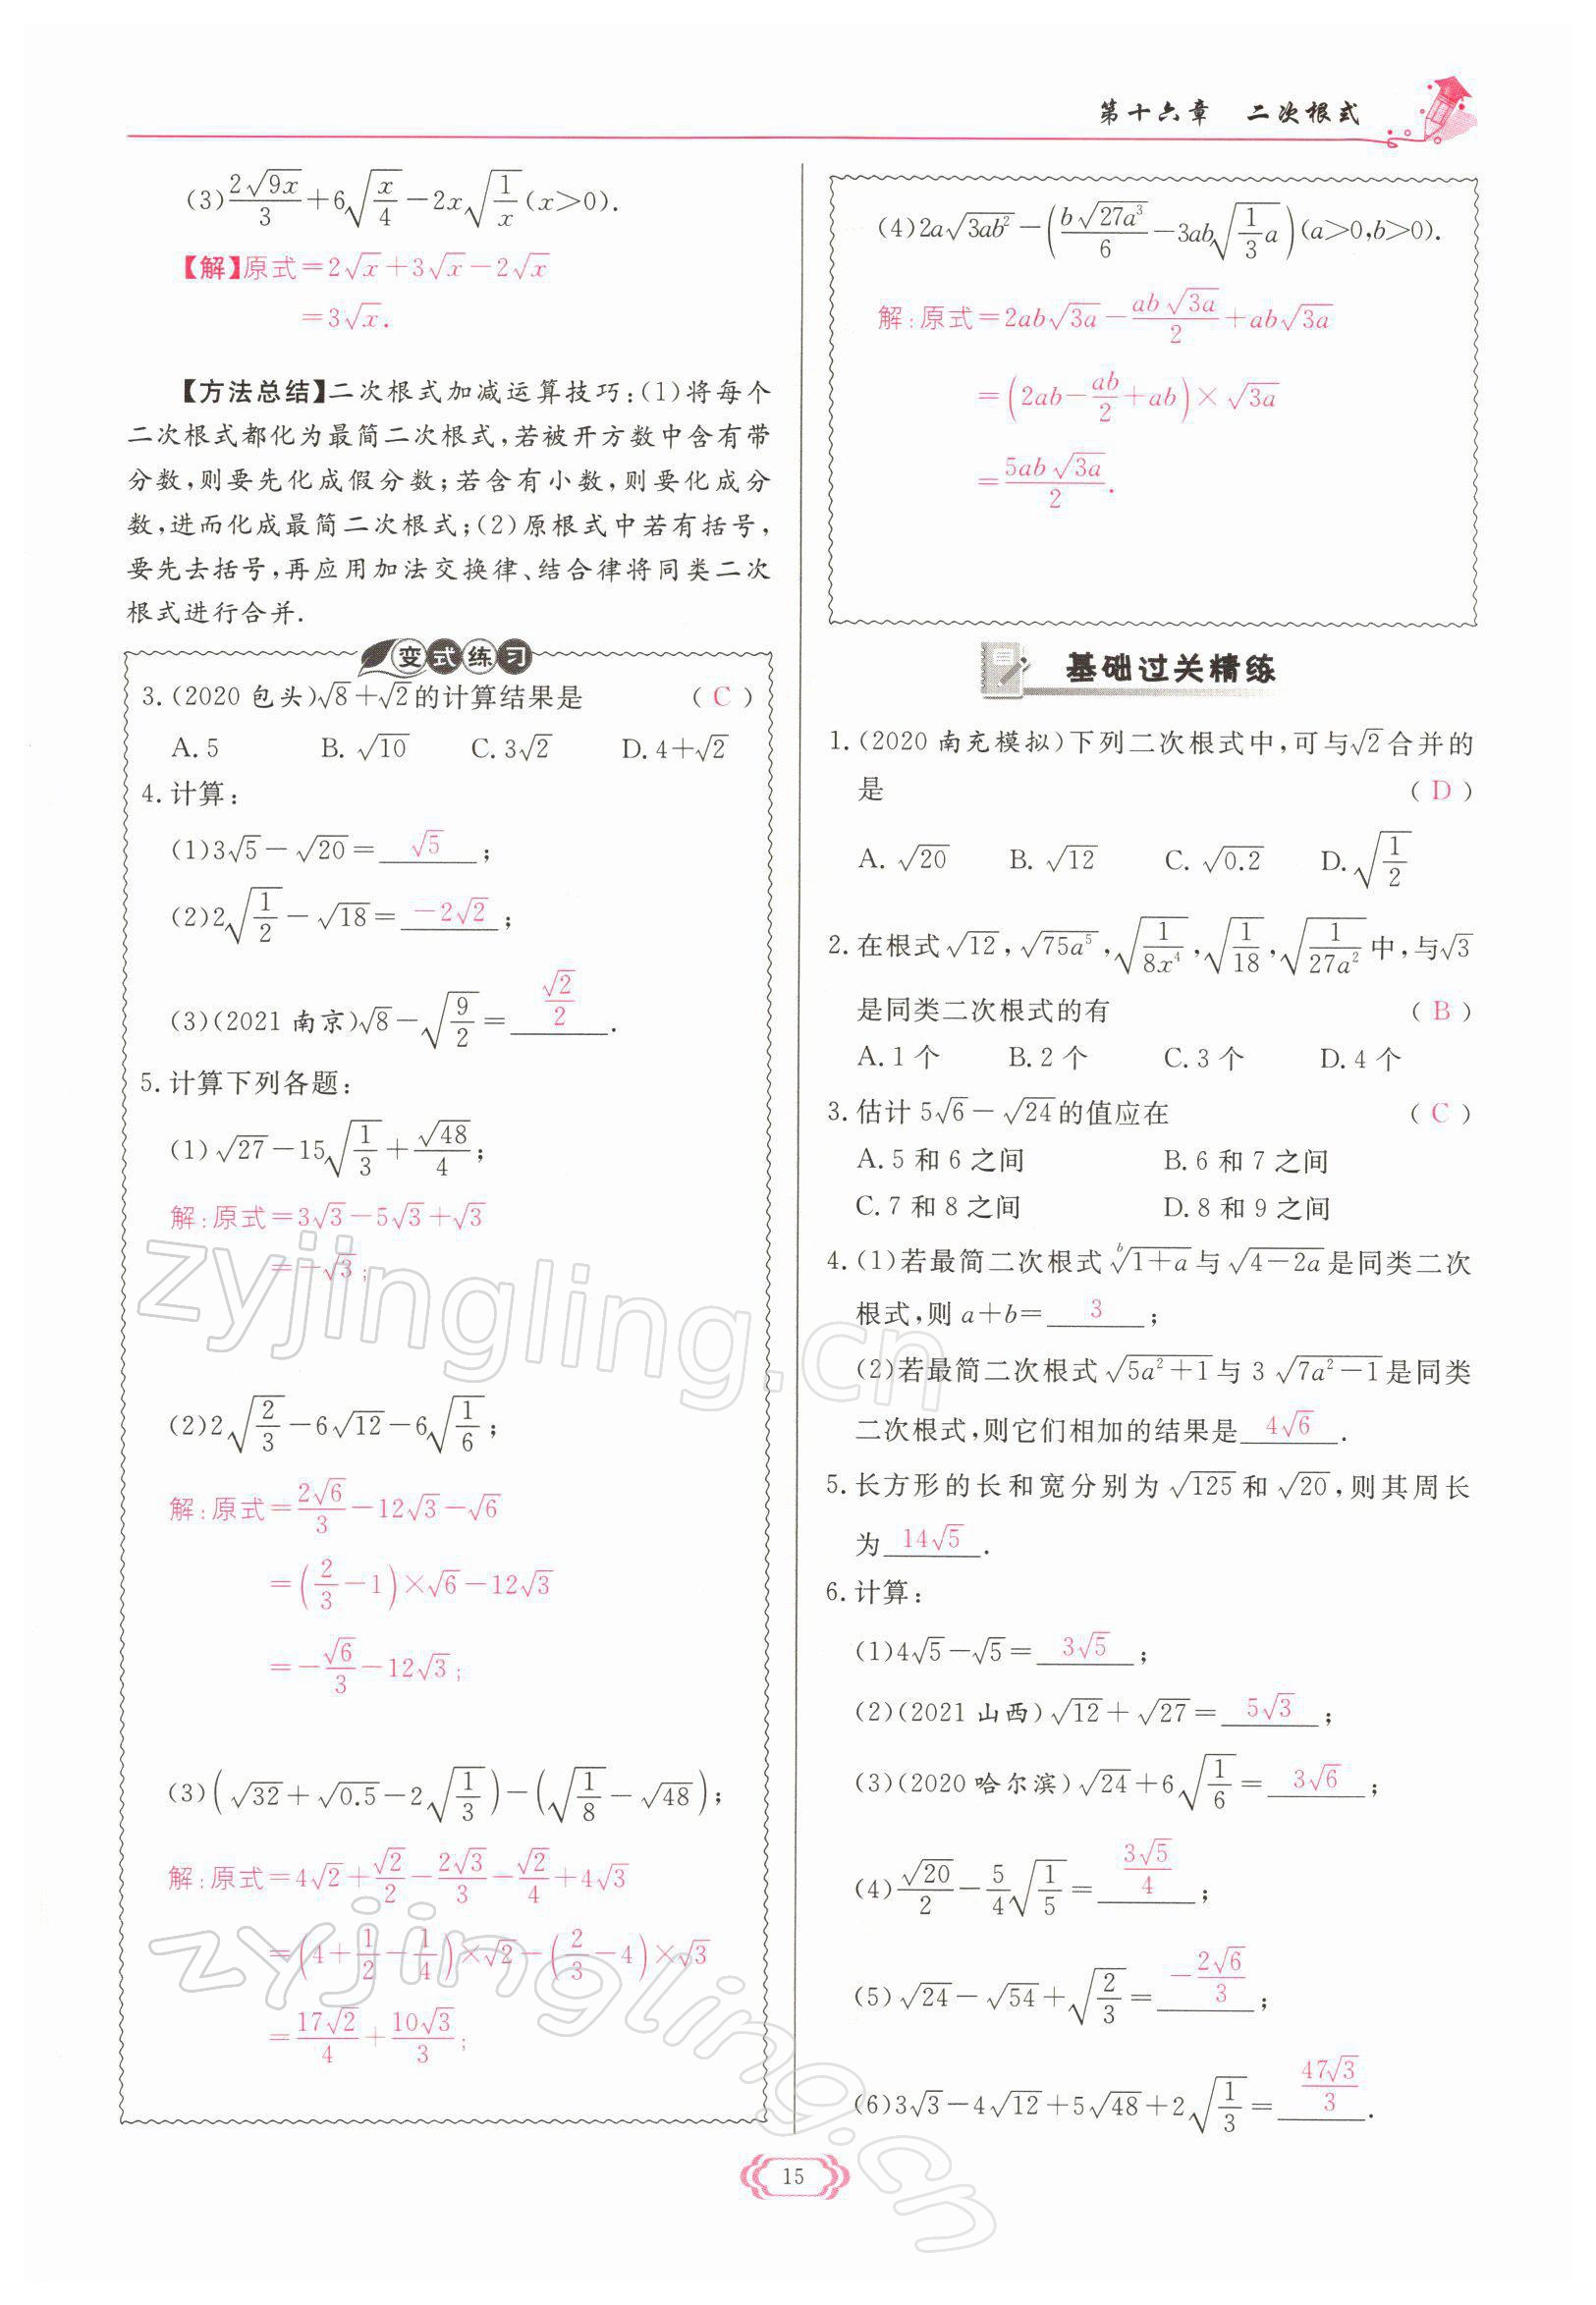 第十六章　二次根式
(3)\frac{2\sqrt{9x}}{3}+6\sqrt{\frac{x}{4}}-2x\sqrt{\frac{1}{x}}(x>0).
【解】原式=2\sqrt{x}+3\sqrt{x}-2\sqrt{x}
=3\sqrt{x}.
【方法总结】二次根式加减运算技巧:(1)将每个
二次根式都化为最简二次根式,若被开方数中含有带
分数,则要先化成假分数;若含有小数,则要化成分
数,进而化成最简二次根式;(2)原根式中若有括号,
要先去括号,再应用加法交换律、结合律将同类二次
根式进行合并.
变式练习
3.(2020 包头)\sqrt{8}+\sqrt{2}的计算结果是 ( C )
A. 5 B. \sqrt{10} C. 3\sqrt{2} D. 4+\sqrt{2}
4. 计算:
(1)3\sqrt{5}-\sqrt{20}=\sqrt{5};
(2)2\sqrt{\frac{1}{2}}-\sqrt{18}=-2\sqrt{2};
(3)(2021 南京)\sqrt{8}-\sqrt{\frac{9}{2}}=\frac{\sqrt{2}}{2}.
5. 计算下列各题:
(1)\sqrt{27}-15\sqrt{\frac{1}{3}}+\frac{\sqrt{48}}{4};
解:原式=3\sqrt{3}-5\sqrt{3}+\sqrt{3}
=-\sqrt{3};
(2)2\sqrt{\frac{2}{3}}-6\sqrt{12}-6\sqrt{\frac{1}{6}};
解:原式=\frac{2\sqrt{6}}{3}-12\sqrt{3}-\sqrt{6}
=(\frac{2}{3}-1)×\sqrt{6}-12\sqrt{3}
=-\frac{\sqrt{6}}{3}-12\sqrt{3};
(3)(\sqrt{32}+\sqrt{0.5}-2\sqrt{\frac{1}{3}})-(\sqrt{\frac{1}{8}}-\sqrt{48});
解:原式=4\sqrt{2}+\frac{\sqrt{2}}{2}-\frac{2\sqrt{3}}{3}-\frac{\sqrt{2}}{4}+4\sqrt{3}
=(4+\frac{1}{2}-\frac{1}{4})×\sqrt{2}-(\frac{2}{3}-4)×\sqrt{3}
=\frac{17\sqrt{2}}{4}+\frac{10\sqrt{3}}{3};
(4)2a\sqrt{3ab^2}-(\frac{b\sqrt{27a^3}}{6}-3ab\sqrt{\frac{1}{3}a})(a>0,b>0).
解:原式=2ab\sqrt{3a}-\frac{ab\sqrt{3a}}{2}+ab\sqrt{3a}
=(2ab-\frac{ab}{2}+ab)×\sqrt{3a}
=\frac{5ab\sqrt{3a}}{2}.
基础过关精练
1.(2020 南充模拟)下列二次根式中,可与\sqrt{2}合并的
是 ( D )
A. \sqrt{20} B. \sqrt{12} C. \sqrt{0.2} D. \sqrt{\frac{1}{2}}
2. 在根式\sqrt{12},\sqrt{75a^5},\sqrt{\frac{1}{8x^4}},\sqrt{\frac{1}{18}},\sqrt{\frac{1}{27a^2}}中,与\sqrt{3}
是同类二次根式的有 ( B )
A. 1 个 B. 2 个 C. 3 个 D. 4 个
3. 估计 5\sqrt{6}-\sqrt{24}的值应在 ( C )
A. 5 和 6 之间 B. 6 和 7 之间
C. 7 和 8 之间 D. 8 和 9 之间
4.(1)若最简二次根式\sqrt[b]{1+a}与\sqrt{4-2a}是同类二次
根式,则 a+b=3;
(2)若最简二次根式\sqrt{5a^2+1}与 3\sqrt{7a^2-1}是同类
二次根式,则它们相加的结果是4\sqrt{6}.
5. 长方形的长和宽分别为\sqrt{125}和\sqrt{20},则其周长
为14\sqrt{5}.
6. 计算:
(1)4\sqrt{5}-\sqrt{5}=3\sqrt{5};
(2)(2021 山西)\sqrt{12}+\sqrt{27}=5\sqrt{3};
(3)(2020 哈尔滨)\sqrt{24}+6\sqrt{\frac{1}{6}}=3\sqrt{6};
(4)\frac{\sqrt{20}}{2}-\frac{5}{4}\sqrt{\frac{1}{5}}=\frac{3\sqrt{5}}{4};
(5)\sqrt{24}-\sqrt{54}+\sqrt{\frac{2}{3}}=-\frac{2\sqrt{6}}{3};
(6)3\sqrt{3}-4\sqrt{12}+5\sqrt{48}+2\sqrt{\frac{1}{3}}=\frac{47\sqrt{3}}{3}.
15
zyjingling.cn
zyjingling.cn